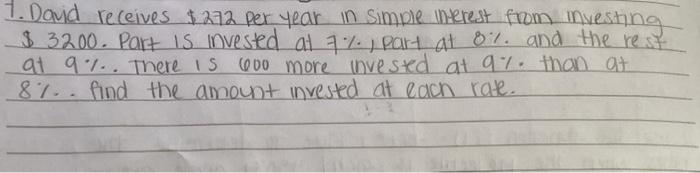 1. David receives $272 per year in simple interest from investing
$ 3200. Part is invested at 7%, part at 8%. and the rest
at 9%.. There is 600 more invested at 9%. than at
8%.. find the amount invested at each rate.